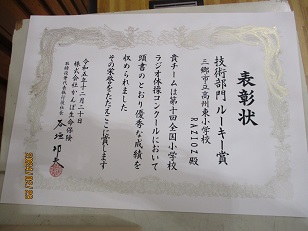 表彰状
技術部門 ルーキー賞
三郷市立高州東小学校
RAZTOZ 殿
貴チームは第十回全国小学校
ラジオ体操コンクールにおいて
頭書のとおり優秀な成績を
収められました
その栄誉をたたえここに賞します
令和五年十二月二十日
株式会社かんぽ生命保険
取締役兼代表執行役社長